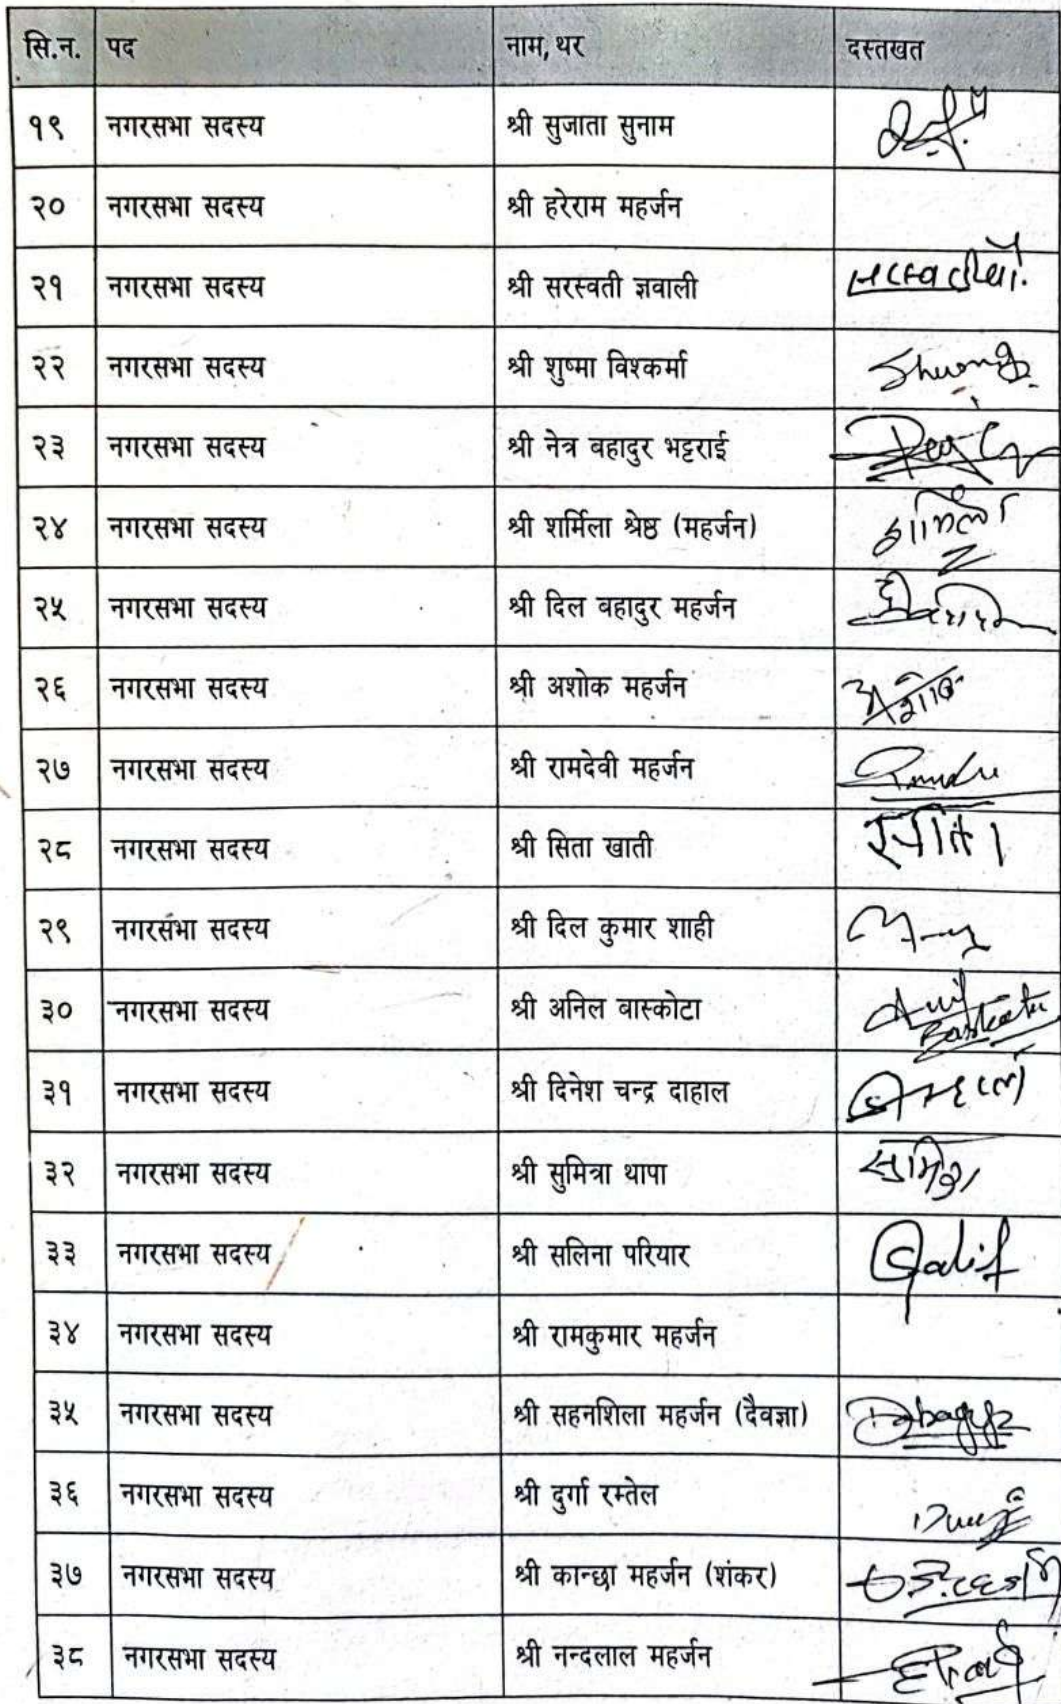 सि.न. पद नाम, थर दस्तखत
१९ नगरसभा सदस्य श्री सुजाता सुनाम
२० नगरसभा सदस्य श्री हरेराम महर्जन
२१ नगरसभा सदस्य श्री सरस्वती ज्ञवाली
२२ नगरसभा सदस्य श्री शुष्मा विश्कर्मा
२३ नगरसभा सदस्य श्री नेत्र बहादुर भट्टराई
२४ नगरसभा सदस्य श्री शर्मिला श्रेष्ठ (महर्जन)
२५ नगरसभा सदस्य श्री दिल बहादुर महर्जन
२६ नगरसभा सदस्य श्री अशोक महर्जन अशोक
२७ नगरसभा सदस्य श्री रामदेवी महर्जन
२८ नगरसभा सदस्य श्री सिता खाती
२९ नगरसभा सदस्य श्री दिल कुमार शाही
३० नगरसभा सदस्य श्री अनिल बास्कोटा
३१ नगरसभा सदस्य श्री दिनेश चन्द्र दाहाल
३२ नगरसभा सदस्य श्री सुमित्रा थापा सुमित्रा
३३ नगरसभा सदस्य श्री सलिना परियार
३४ नगरसभा सदस्य श्री रामकुमार महर्जन
३५ नगरसभा सदस्य श्री सहनशिला महर्जन (दैवज्ञा)
३६ नगरसभा सदस्य श्री दुर्गा रम्तेल
३७ नगरसभा सदस्य श्री कान्छा महर्जन (शंकर)
३८ नगरसभा सदस्य श्री नन्दलाल महर्जन